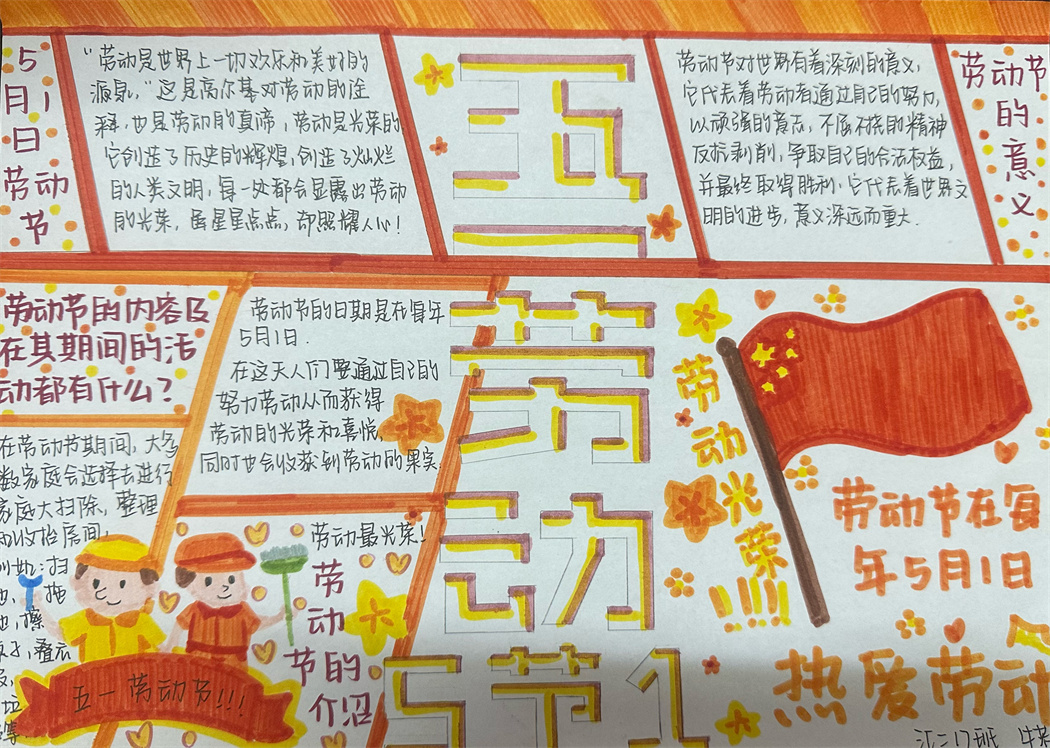 5
月1
日
劳动
节
"劳动是世界上一切欢乐和美好的
源泉，"这是高尔基对劳动的诠
释，也是劳动的真谛，劳动是光荣的
它创造了历史的辉煌，创造了灿烂
的人类文明，每一处都会显露出劳动
的光荣，虽星星点点，却照耀人心！
五
一
劳动节对世界有着深刻的意义，
它代表着劳动者通过自己的努力，
以顽强的意志，不屈不挠的精神
反抗剥削，争取自己的合法权益，
并最终取得胜利．它代表着世界文
明的进步，意义深远而重大．
劳动节
的
意
义
劳动节的内容及
在其期间的活
动都有什么？
在劳动节期间，大多
数家庭会选择去进行
家庭大扫除，整理
和收拾房间，
例如：扫
地，拖
地，擦
叠衣
等
劳动节的日期是在每年
5月1日．
在这天人们要通过自己的
努力劳动从而获得
劳动的光荣和喜悦，
同时也会收获到劳动的果实．
劳动最光荣！
劳
动
节的
介绍
五一劳动节！！！
劳
动
5节1
劳
动
光
荣
！！！！
劳动节在每
年5月1日
热爱劳动